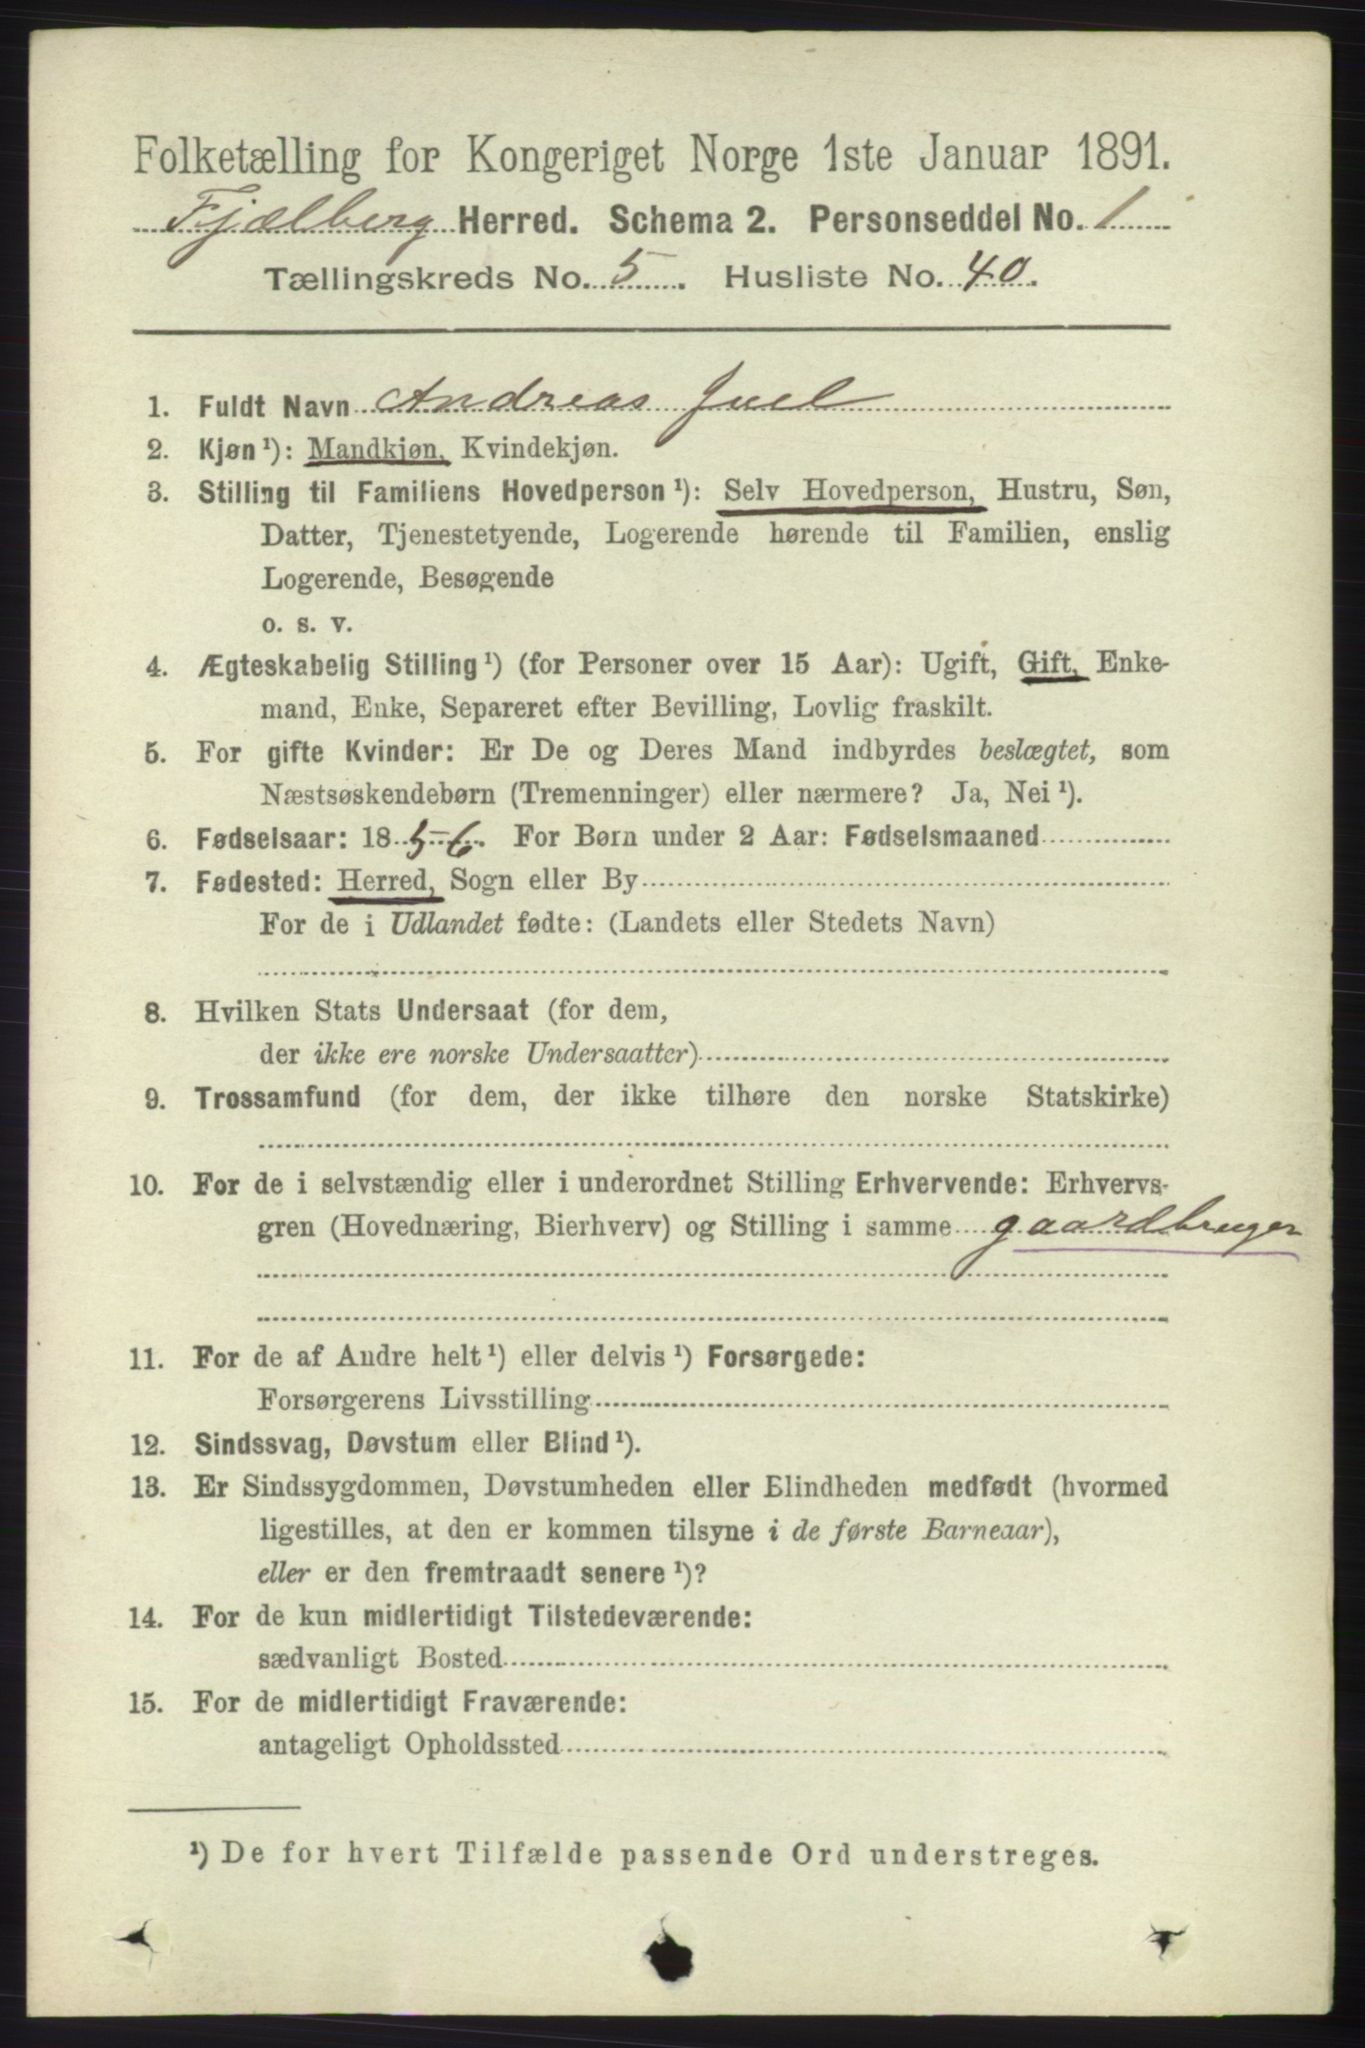 Folketælling for Kongeriget Norge 1ste Januar 1891.
Fjælberg Herred. Schema 2. Personseddel No. 1
Tællingskreds No. 5. Husliste No. 40.
1. Fuldt Navn Andreas Juel
2. Kjøn ¹): Mandkjøn, Kvindekjøn.
3. Stilling til Familiens Hovedperson ¹): Selv Hovedperson, Hustru, Søn,
Datter, Tjenestetyende, Logerende hørende til Familien, enslig
Logerende, Besøgende
o. s. v.
4. Ægteskabelig Stilling ¹) (for Personer over 15 Aar): Ugift, Gift, Enke-
mand, Enke, Separeret efter Bevilling, Lovlig fraskilt.
5. For gifte Kvinder: Er De og Deres Mand indbyrdes beslægtet, som
Næstsøskendebørn (Tremenninger) eller nærmere? Ja, Nei ¹).
6. Fødselsaar: 1856. For Børn under 2 Aar: Fødselsmaaned
7. Fødested: Herred, Sogn eller By
For de i Udlandet fødte: (Landets eller Stedets Navn)
8. Hvilken Stats Undersaat (for dem,
der ikke ere norske Undersaatter)
9. Trossamfund (for dem, der ikke tilhøre den norske Statskirke)
10. For de i selvstændig eller i underordnet Stilling Erhvervende: Erhvervs-
gren (Hovednæring, Bierhverv) og Stilling i samme gaardbruger
11. For de af Andre helt ¹) eller delvis ¹) Forsørgede:
Forsørgerens Livsstilling
12. Sindssvag, Døvstum eller Blind ¹).
13. Er Sindssygdommen, Døvstumheden eller Blindheden medfødt (hvormed
ligestilles, at den er kommen tilsyne i de første Barneaar),
eller er den fremtraadt senere ¹)?
14. For de kun midlertidigt Tilstedeværende:
sædvanligt Bosted
15. For de midlertidigt Fraværende:
antageligt Opholdssted
¹) De for hvert Tilfælde passende Ord understreges.